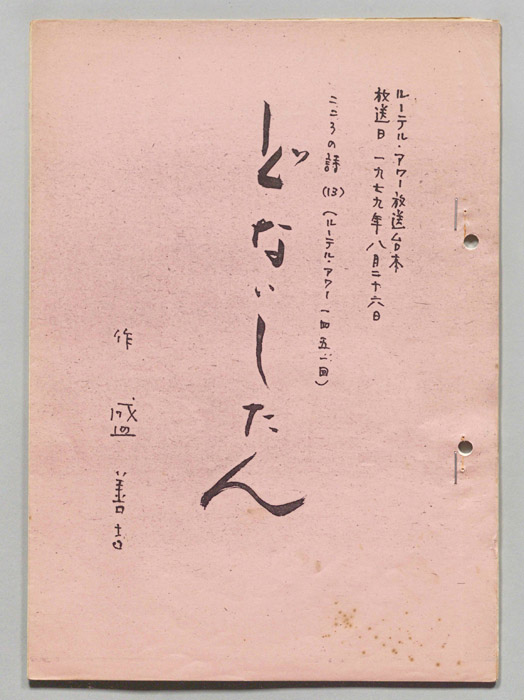 ルーテル・アワー放送台本
放送日 一九七九年八月二十六日
こころの詩 (13) (ルーテル・アワー一四五一回)
どないしたん
作 盛善吉